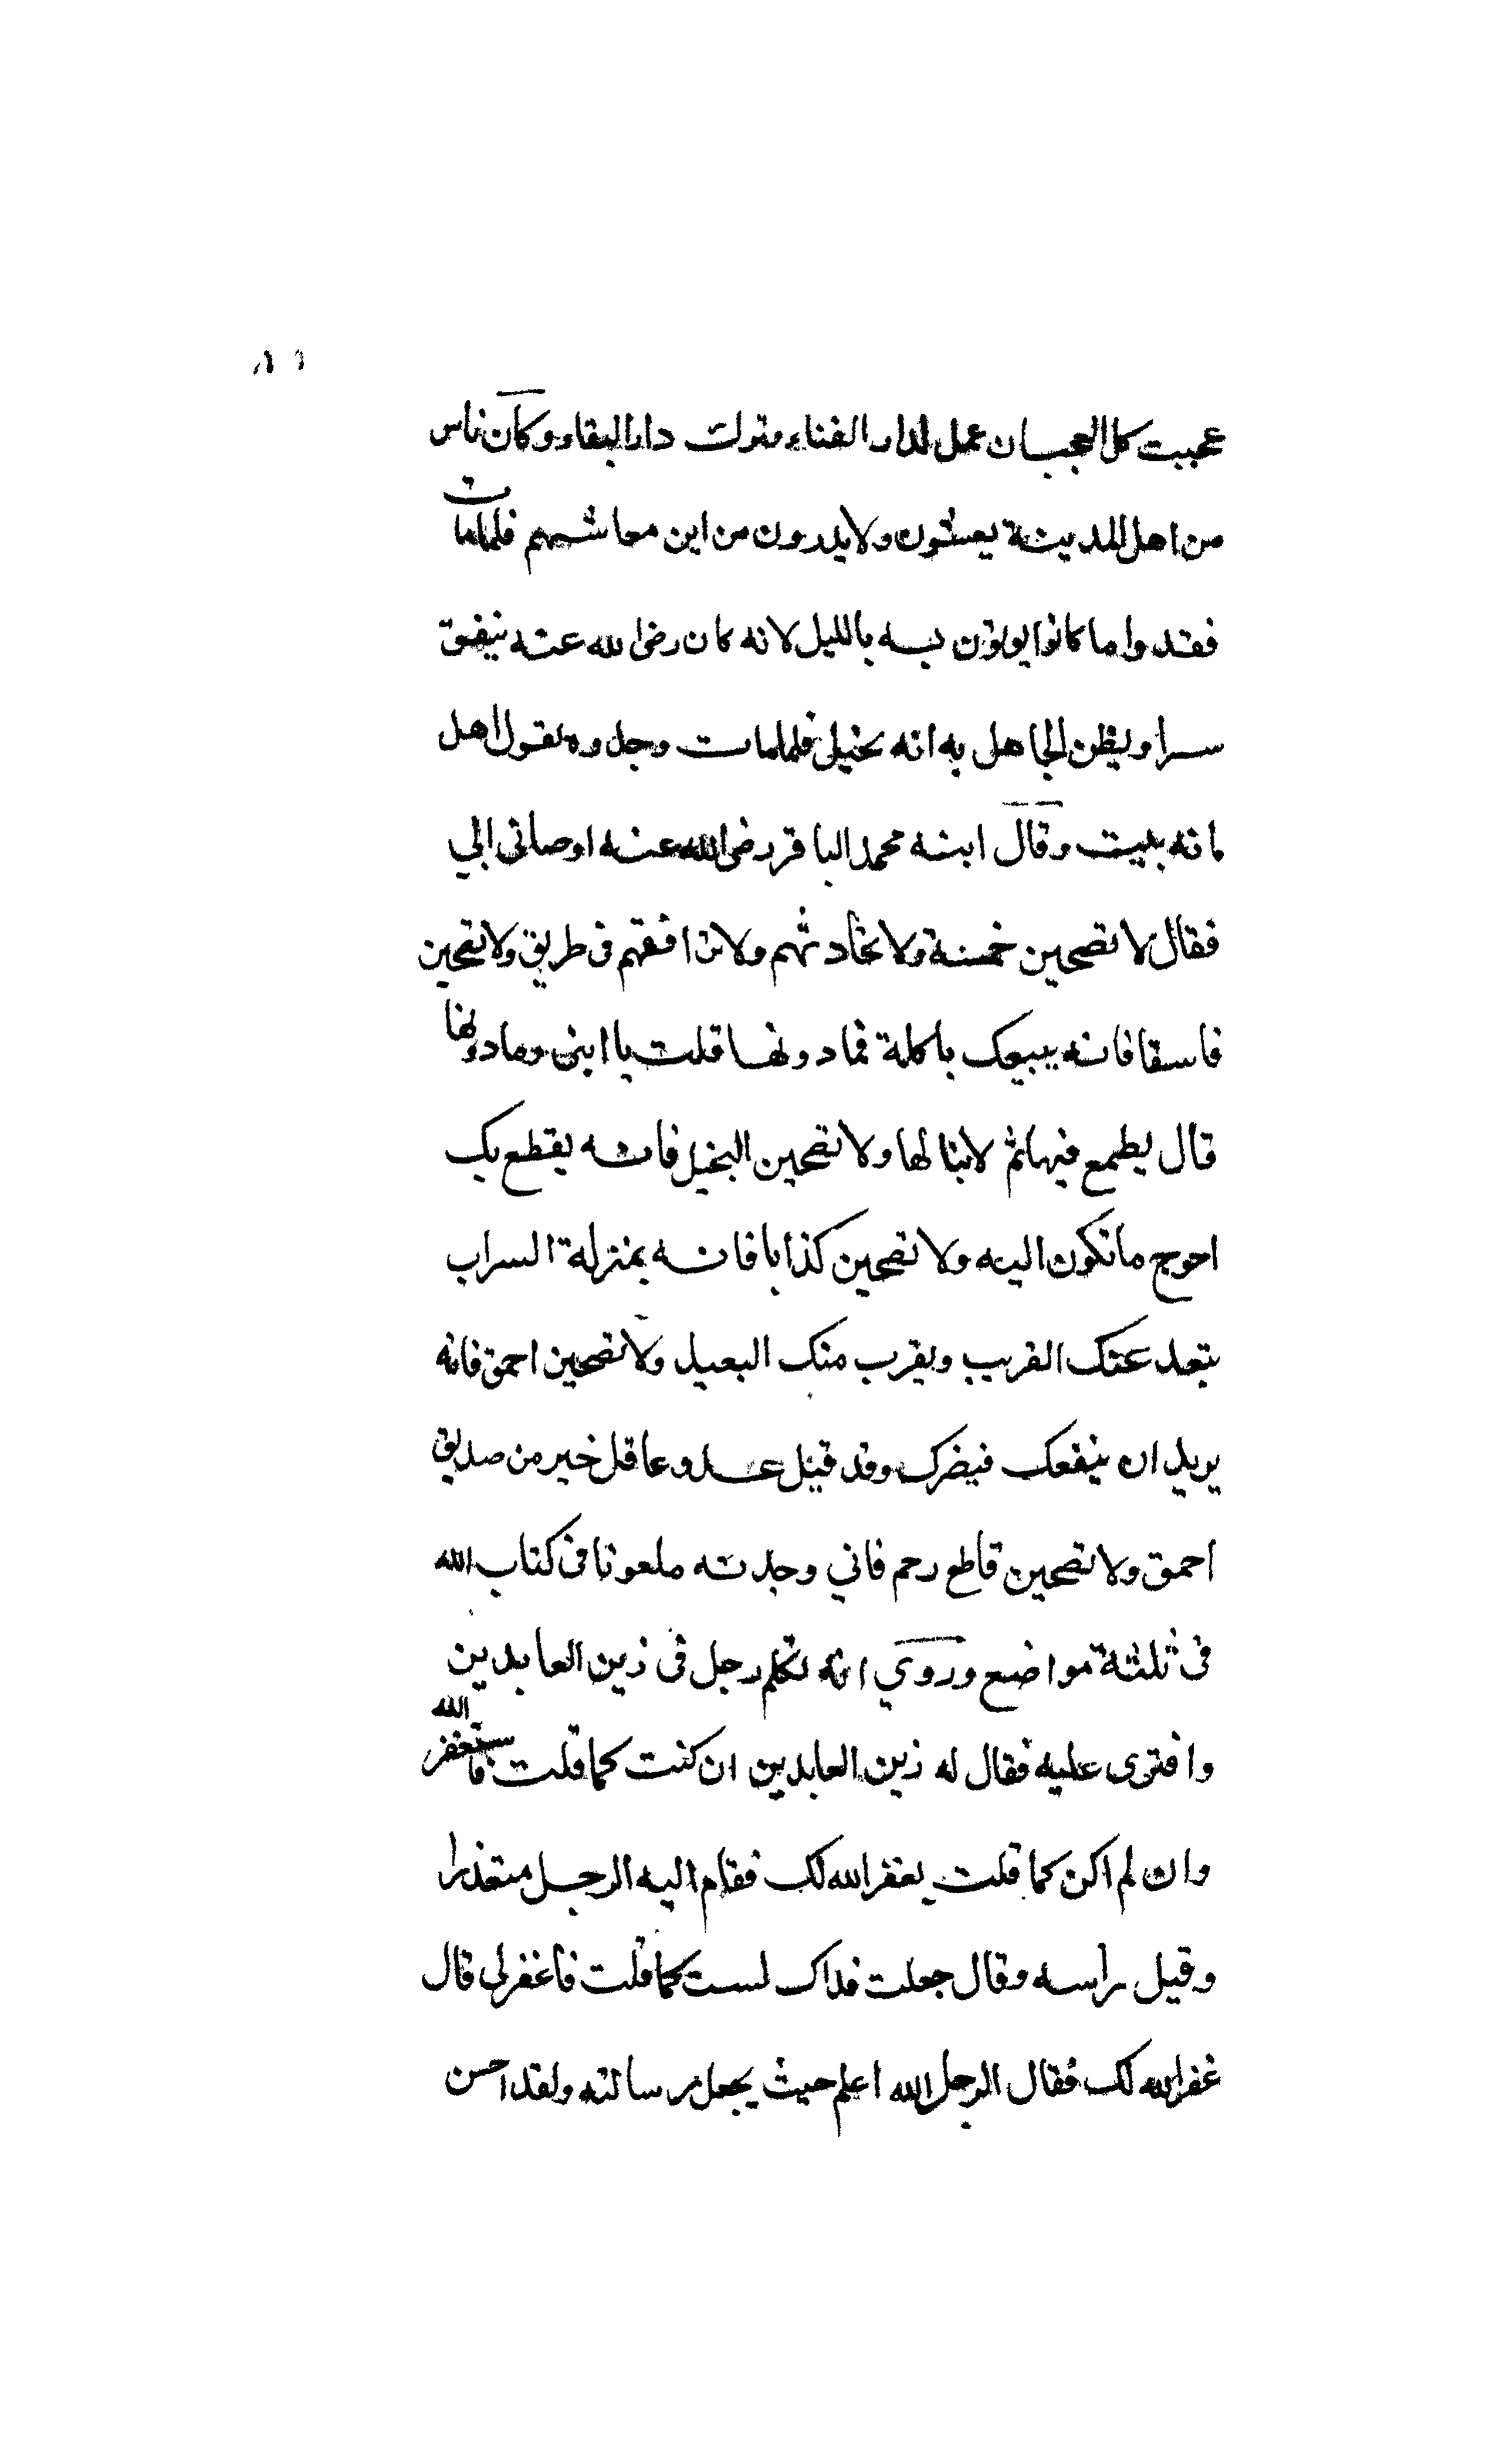 عجبت كل العجب ان عمل لدار الفناء وترك دار البقاء وكان ناس
من اهل المدينة يعيشون ولا يدرون من اين معاشهم فلما مات
فقدوا ما كانوا يوتون به بالليل لانه كان رضى الله عنه ينفق
سرا ويظن الجاهل به انه بخيل فلما مات وجدوه يقول اهل
مائه بيت وقال ابنه محمد الباقر رضى الله عنه اوصانى ابي
فقال لا تصحبن خمسة ولا تحادثهم ولا ترافقهم فى طريق ولا تصحبن
فاسقا فانه يبيعك باكلة فما دونها قلت يا ابتى وما دونها
قال يطمع فيها ثم لا ينالها ولا تصحبن البخيل فانه يقطع بك
احوج ما تكون اليه ولا تصحبن كذابا فانه بمنزلة السراب
يبعد عنك القريب ويقرب منك البعيد ولا تصحبن احمق فانه
يريد ان ينفعك فيضرك وقد قيل عدو عاقل خير من صديق
احمق ولا تصحبن قاطع رحم فاني وجدته ملعونا فى كتاب الله
فى ثلثة مواضع وروي انه تكلم رجل فى زين العابدين
وافترى عليه فقال له زين العابدين ان كنت كما قلت فاستغفر الله
وان لم اكن كما قلت يغفر الله لك فقام اليه الرجل متعذرا
وقبل راسه وقال جعلت فداك لست كما قلت فاغفر لى قال
غفر الله لك فقال الرجل الله اعلم حيث يجعل رسالته ولقد احسن